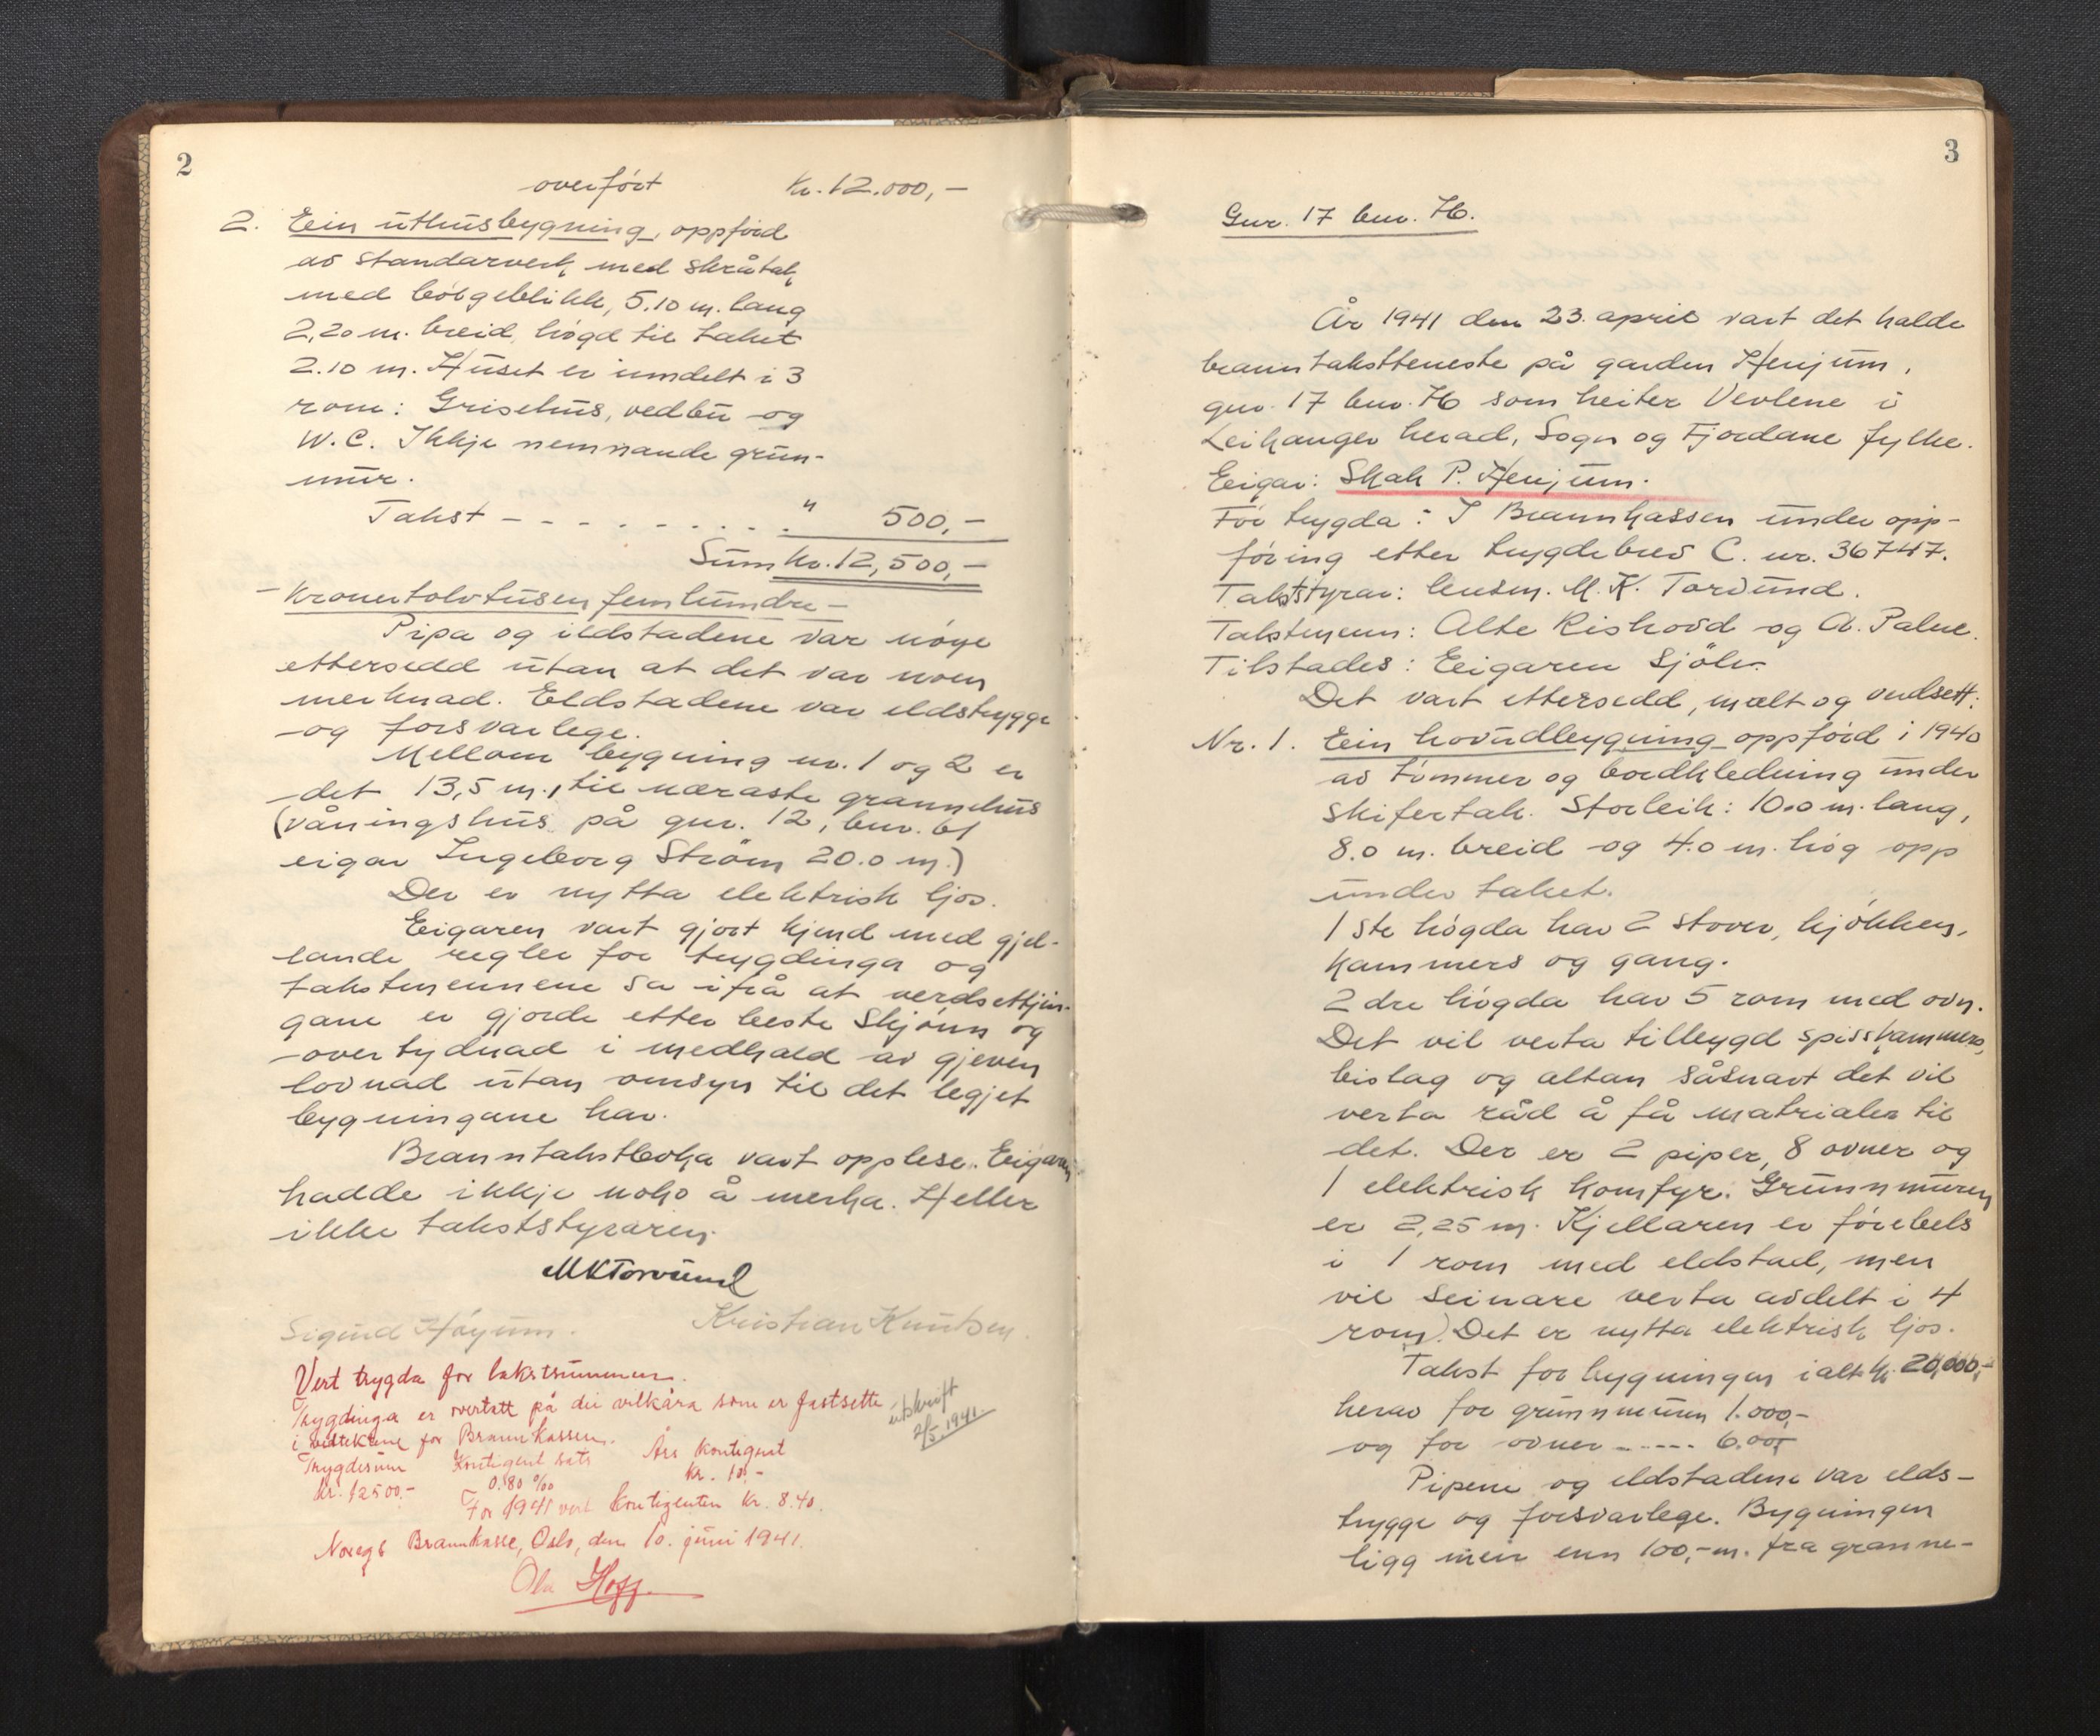 2
overført Kr. 12.000,-
2. Ein uthusbygning, oppförd
av standarverk med skråtak
med bölgeblikk, 5.10 m. lang
2,20 m. breid, högd til taket
2.10 m. Huset er inndelt i 3
rom: Grisehus, vedbu og
W.C. Ikkje nemnande grun-
mur.
Takst - - - - - - - - - " 500,-
Sum kr. 12,500,-
- Kronertolvtusen femhundre -
Pipa og ildstadene var nöye
ettersedd utan at det var noen
merknad. Eldstadene var eldstrygge
og forsvarlege.
Mellom bygning nr. 1 og 2 er
det 13,5 m., til næraste grannehus
(våningshus på gnr. 12, bnr. 61
eigar Ingeborg Ström 20.0 m.)
Der er nytta elektrisk ljos.
Eigaren vart gjort kjend med gjel-
lande regler for trygdinga og
takstmennene sa ifrå at verdsettjin-
gane er gjorde etter beste skjönn og
overtydnad i medhald av gjeven
lovnad utan omsyn til det legjet
bygningane har.
Branntakstboka vart opplese. Eigaren
hadde ikkje noko å merka. Heller
ikke takststyraren.
MKTorvund
Sigurd Höyum. Kristian Knutsen.
Vert trygda for takstsummen.
Trygdinga er overtatt på dei vilkåra som er fastsette
i vedtektene for Brannkassen.
utskrift
2/5.1941.
Trygdesum Kontigent sats Års kontigent
kr. 12500.- 0.80 ‰ kr. 10.-
For 1941 vert kontigenten kr. 8.40.
Noregs Brannkasse, Oslo, den 10. juni 1941.
Ola Hoff.
3
Gnr. 17 bnr. 76.
År 1941 den 23. april vart det halde
branntakstteneste på garden Henjum,
gnr. 17 bnr. 76 som heiter Vevlene i
Leikanger herad, Sogn og Fjordane fylke.
Eigar: Skak P. Henjum.
För trygda: I Brannkassen under opp-
föring etter trygdebrev C. nr. 36747.
Takststyrar: lensm. M. K. Torvund.
Takstmenn: Alte Rishovd og A. Palne.
Tilstades: Eigaren sjölv.
Det vart ettersedd, mælt og verdsett:
Nr. 1. Ein hovudbygning oppförd i 1940
av tömmer og bordkledning under
skifertak. Storleik: 10.0 m. lang,
8.0 m. breid og 4.0 m. hög opp
under taket.
1 ste högda har 2 stover, kjökken,
kammers og gang.
2 dre högda har 5 rom med ovn.
Det vil verta tilbygd spisskammers,
bislag og altan såsnart det vil
verta råd å få matrialer til
det. Der er 2 piper, 8 ovner og
1 elektrisk komfyr. Grunnmuren
er 2,25 m. Kjellaren er förebels
i 1 rom med eldstad, men
vil seinare verta avdelt i 4
rom). Det er nytta elektrisk ljos.
Takst for bygningen ialt kr. 20,000,-
herav for grunnmuren 1.000,-
og for ovner - - - - - 600,-
Pipene og eldstadene var elds-
trygge og forsvarlege. Bygningen
ligg meir enn 100,- m. fra granne-